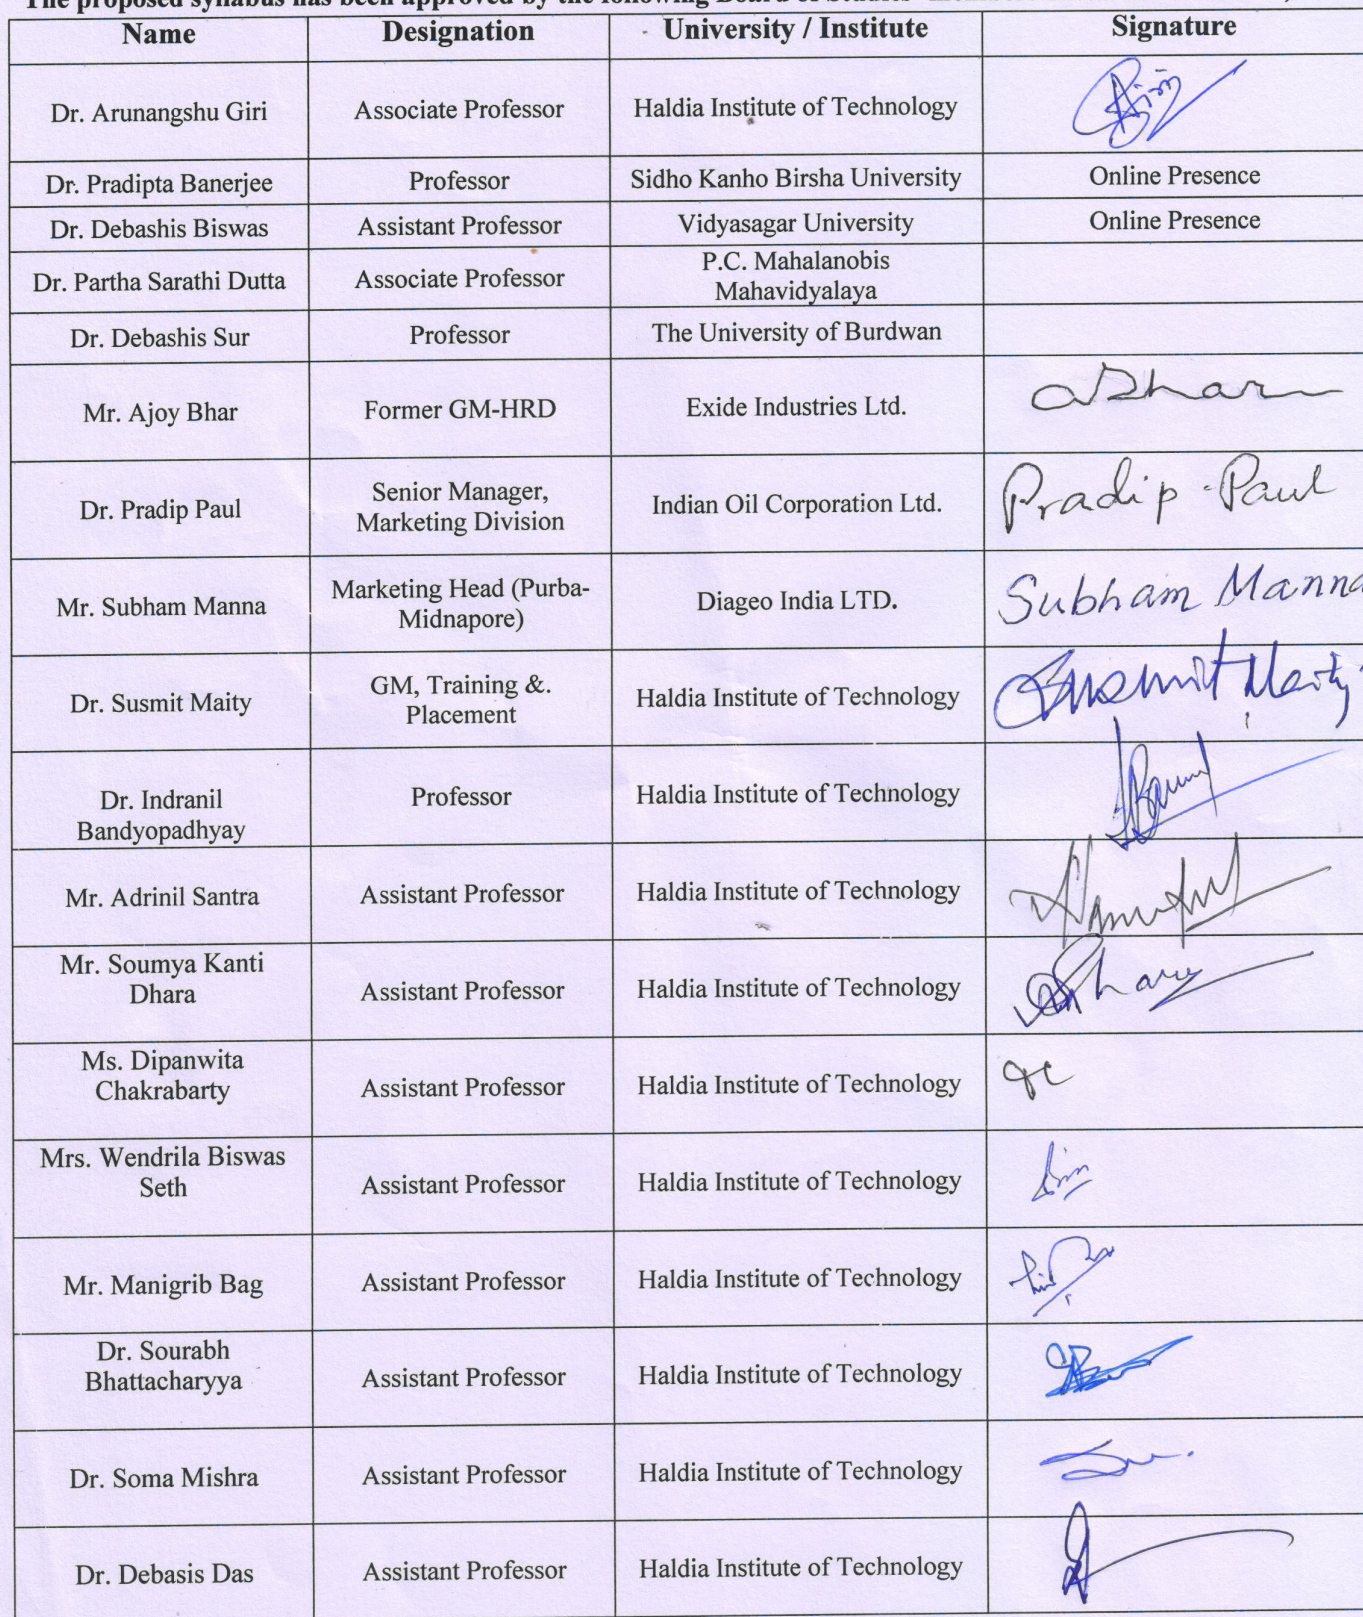 The proposed syllabus has been approved by the following Board of Studies
Name Designation University / Institute Signature
Dr. Arunangshu Giri Associate Professor Haldia Institute of Technology
Dr. Pradipta Banerjee Professor Sidho Kanho Birsha University Online Presence
Dr. Debashis Biswas Assistant Professor Vidyasagar University Online Presence
Dr. Partha Sarathi Dutta Associate Professor P.C. Mahalanobis
Mahavidyalaya
Dr. Debashis Sur Professor The University of Burdwan
Mr. Ajoy Bhar Former GM-HRD Exide Industries Ltd. ABhar
Dr. Pradip Paul Senior Manager,
Marketing Division Indian Oil Corporation Ltd. Pradip Paul
Mr. Subham Manna Marketing Head (Purba-
Midnapore) Diageo India LTD. Subham Manna
Dr. Susmit Maity GM, Training &.
Placement Haldia Institute of Technology Susmit Maity
Dr. Indranil
Bandyopadhyay Professor Haldia Institute of Technology
Mr. Adrinil Santra Assistant Professor Haldia Institute of Technology
Mr. Soumya Kanti
Dhara Assistant Professor Haldia Institute of Technology
Ms. Dipanwita
Chakrabarty Assistant Professor Haldia Institute of Technology
Mrs. Wendrila Biswas
Seth Assistant Professor Haldia Institute of Technology
Mr. Manigrib Bag Assistant Professor Haldia Institute of Technology
Dr. Sourabh
Bhattacharyya Assistant Professor Haldia Institute of Technology
Dr. Soma Mishra Assistant Professor Haldia Institute of Technology
Dr. Debasis Das Assistant Professor Haldia Institute of Technology